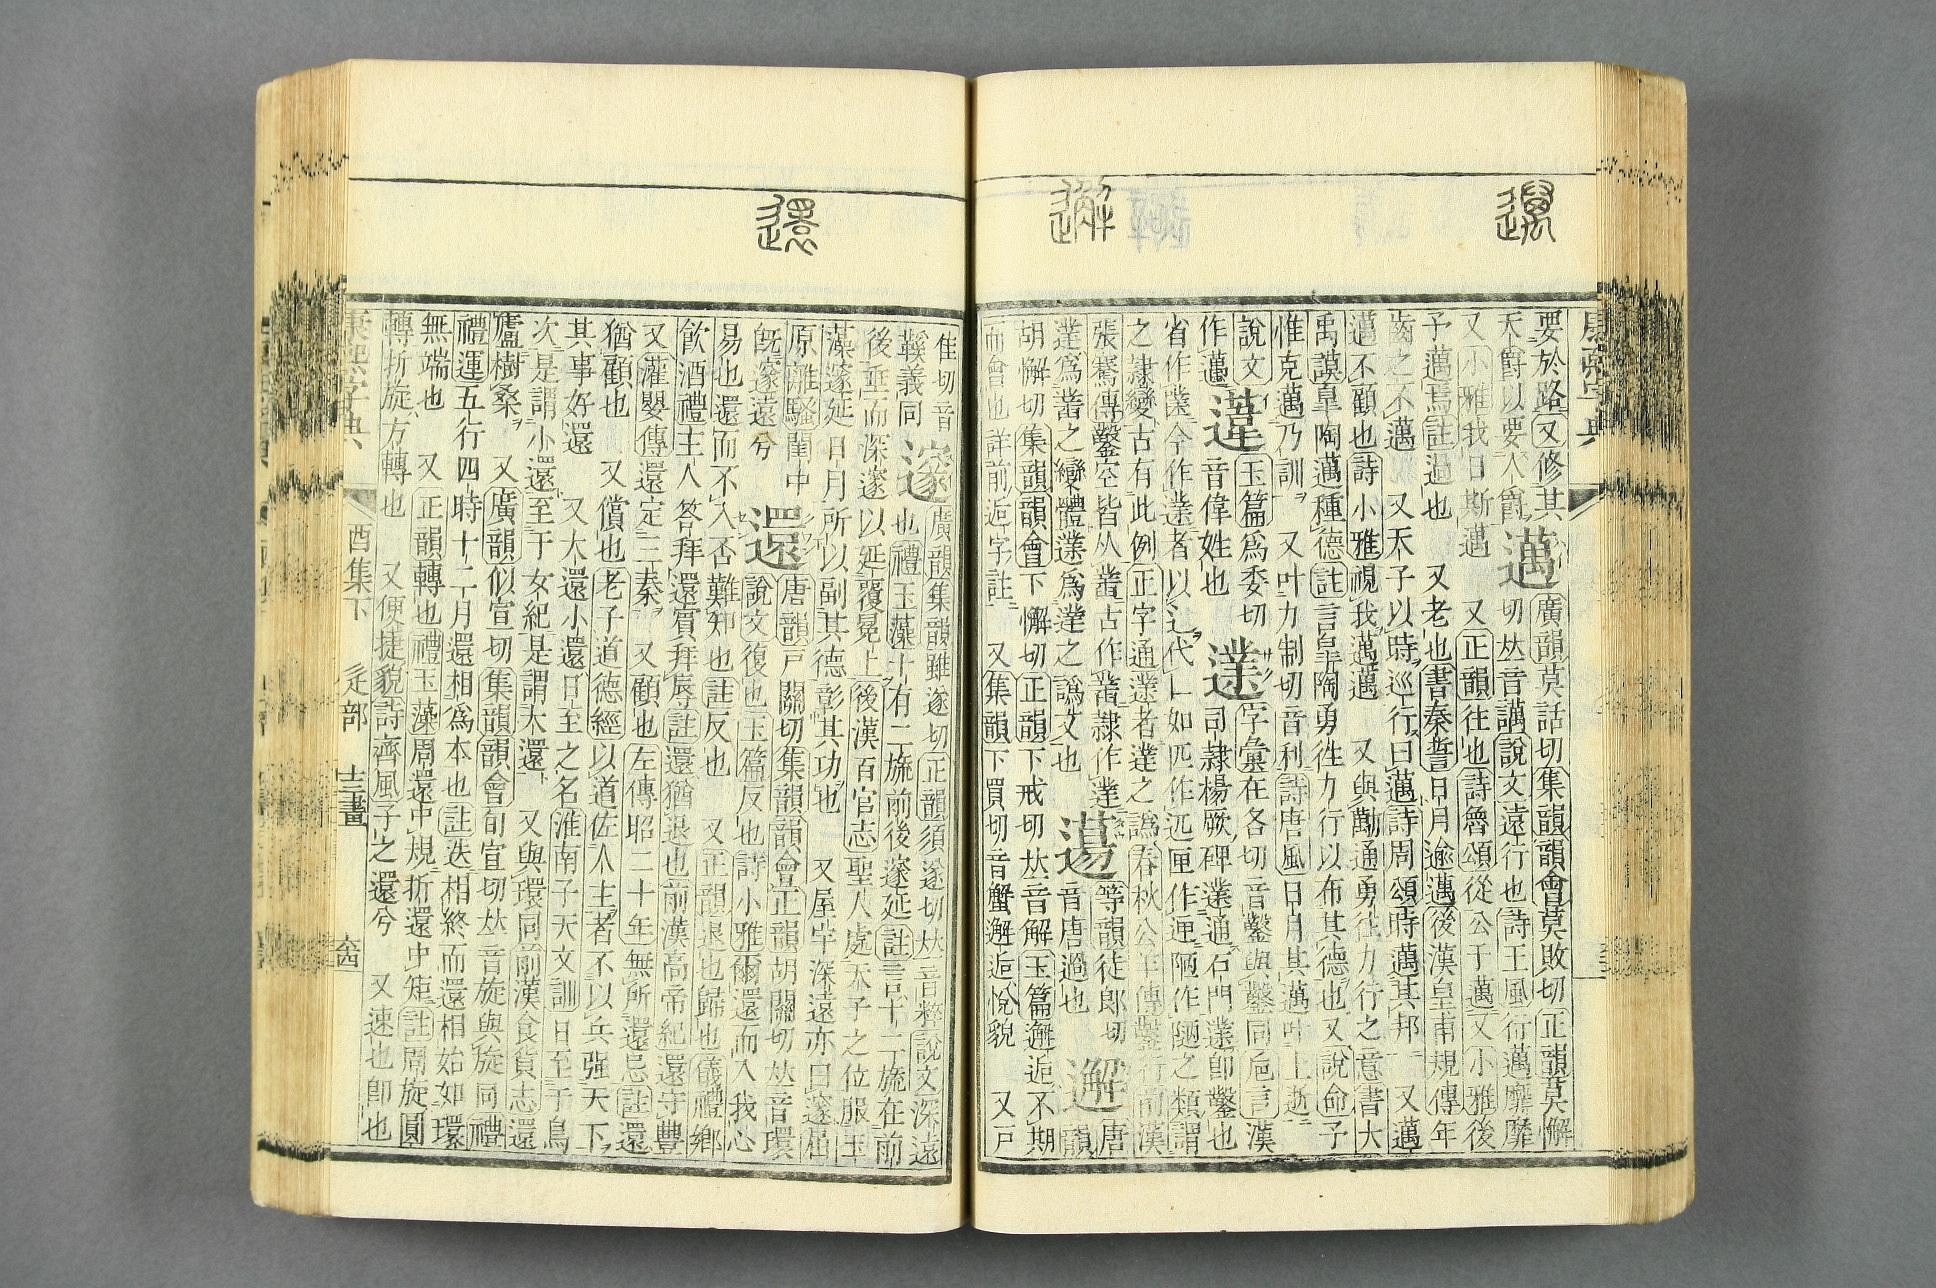 要於路又修其邁廣韻莫話切集韻韻會莫敗切正韻莫懈
天爵以要人爵邁切𠀤音講說文遠行也詩王風行邁靡靡
又小雅我日斯邁 又正韻往也詩魯頌從公于邁又小雅後
予邁焉註過也 又老也書秦誓日月逾邁後漢皇甫規傳年
齒之不邁 又天子以時巡行曰邁詩周頌時邁其邦 又邁
邁不顧也詩小雅視我邁邁 又與勱通勇往力行之意書大
禹謨皐陶邁種德註言皐陶勇往力行以布其德也又說命予
惟克邁乃訓 又叶力制切音利詩唐風日月其邁叶上逝
說文 玉篇為委切 字彙在各切音鑿與鑿同危言漢
作邁 音偉姓也 司隷楊厥碑 通石門 卽鑿也
省作 今作 者以近代 如匹作疋匣作 陋作 之類謂
之隷變古有此例正字通 者 之譌春秋公羊傳鑿行前漢
張騫傳鑿空皆从 古作 隷作
為 之變體 為 之譌文也 等韻徒郎切
音唐過也 邂唐韻
胡懈切集韻韻會下懈切正韻下戒切𠀤音解玉篇邂逅不期
而會也詳前逅字註 又集韻下買切音蟹邂逅悅貌 又戸
佳切音 邃廣韻集韻雖遂切正韻須遂切𠀤音粹說文深遠
鞵義同 也禮玉藻十有二旒前後邃延註言十二旒在前
後垂而深邃以延覆冕上後漢百官志聖人處天子之位服玉
藻邃延日月所以副其德彰其功也 又屋宇深遠亦曰邃屈
原離騷閨中 還唐韻戸關切集韻韻會正韻胡關切𠀤音環
旣邃遠兮 說文復也玉篇反也詩小雅爾還而入我心
易也還而不入否難知也註反也 又正韻退也歸也儀禮鄉
飮酒禮主人答拜還賓拜辱註還猶退也前漢高帝紀還守豐
又灌嬰傳還定三秦 又顧也左傳昭二十年無所還忌註還
猶顧也 又償也老子道德經以道佐人主者不以兵强天下
其事好還 又大還小還日至之名淮南子天文訓日至于鳥
次是謂小還至于女紀是謂大還 又與環同前漢食貨志還
廬樹桑 又廣韻似宣切集韻韻會旬宣切𠀤音旋與旋同禮
禮運五行四時十二月還相為本也註迭相終而還相始如環
無端也 又正韻轉也禮玉藻周還中規折還中矩註周旋圓
轉折旋方轉也 又便捷貌詩齊風子之還兮 又速也卽也
康熙字典 酉集下 辵部 十三畫 六四